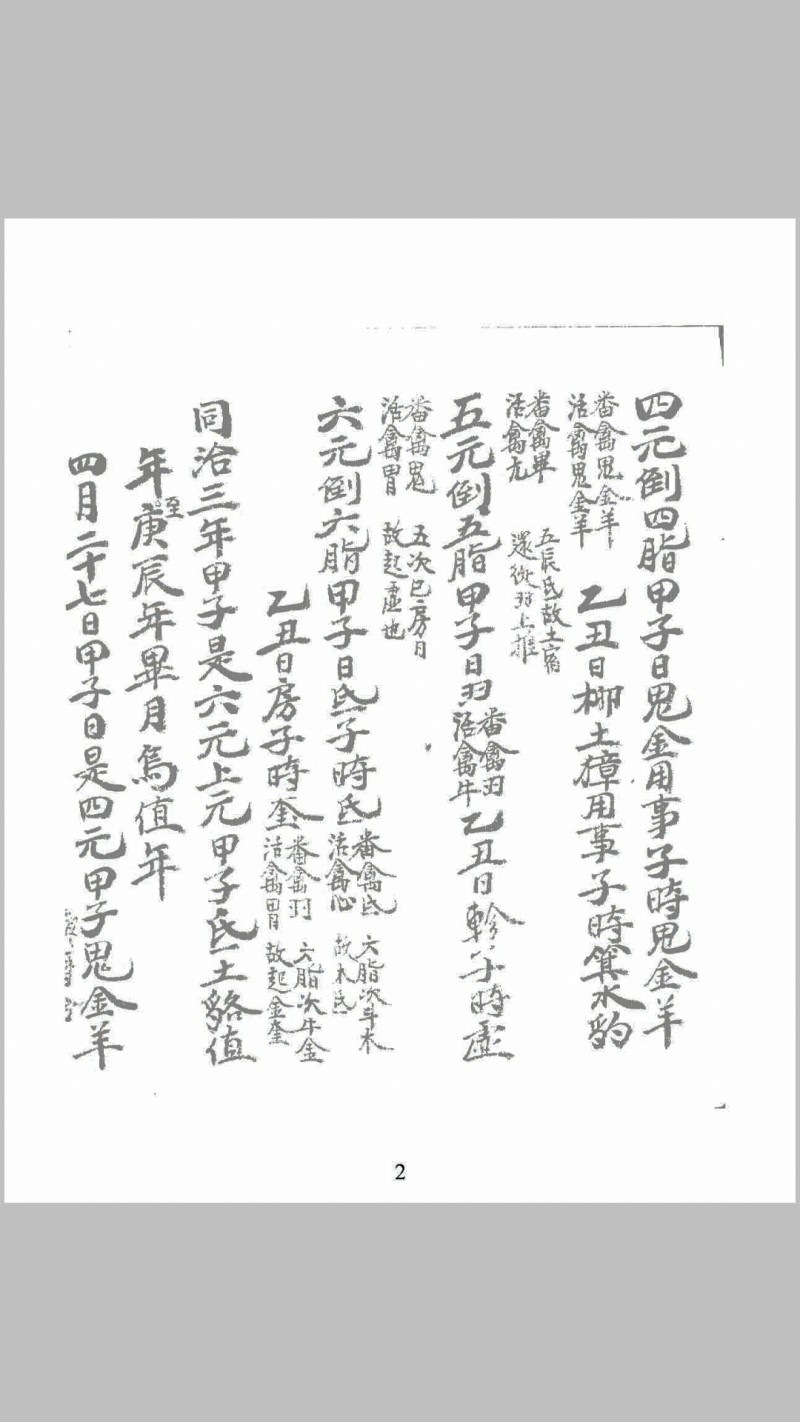 四元倒四脂甲子日鬼金用事子時鬼金羊
番禽鬼金羊
活禽鬼金羊
乙丑日柳土樟用事子時箕水豹
番禽畢
活禽亢
五辰氐故土
還從羽上推
五元倒五脂甲子日羽
番禽羽
活禽牛
乙丑日軫子時虛
番禽鬼
活禽胃
五次巳房日
故起虛也
六元倒六脂甲子日氐子時氐
番禽氐
活禽心
六脂次斗木
故木氐
乙丑日房子時奎
番禽羽
活禽胃
六脂次牛金
故起金奎
同治三年甲子是六元上元甲子氐土貉值
年至庚辰年畢月烏值年
四月二十七日甲子日是四元甲子鬼金羊
2